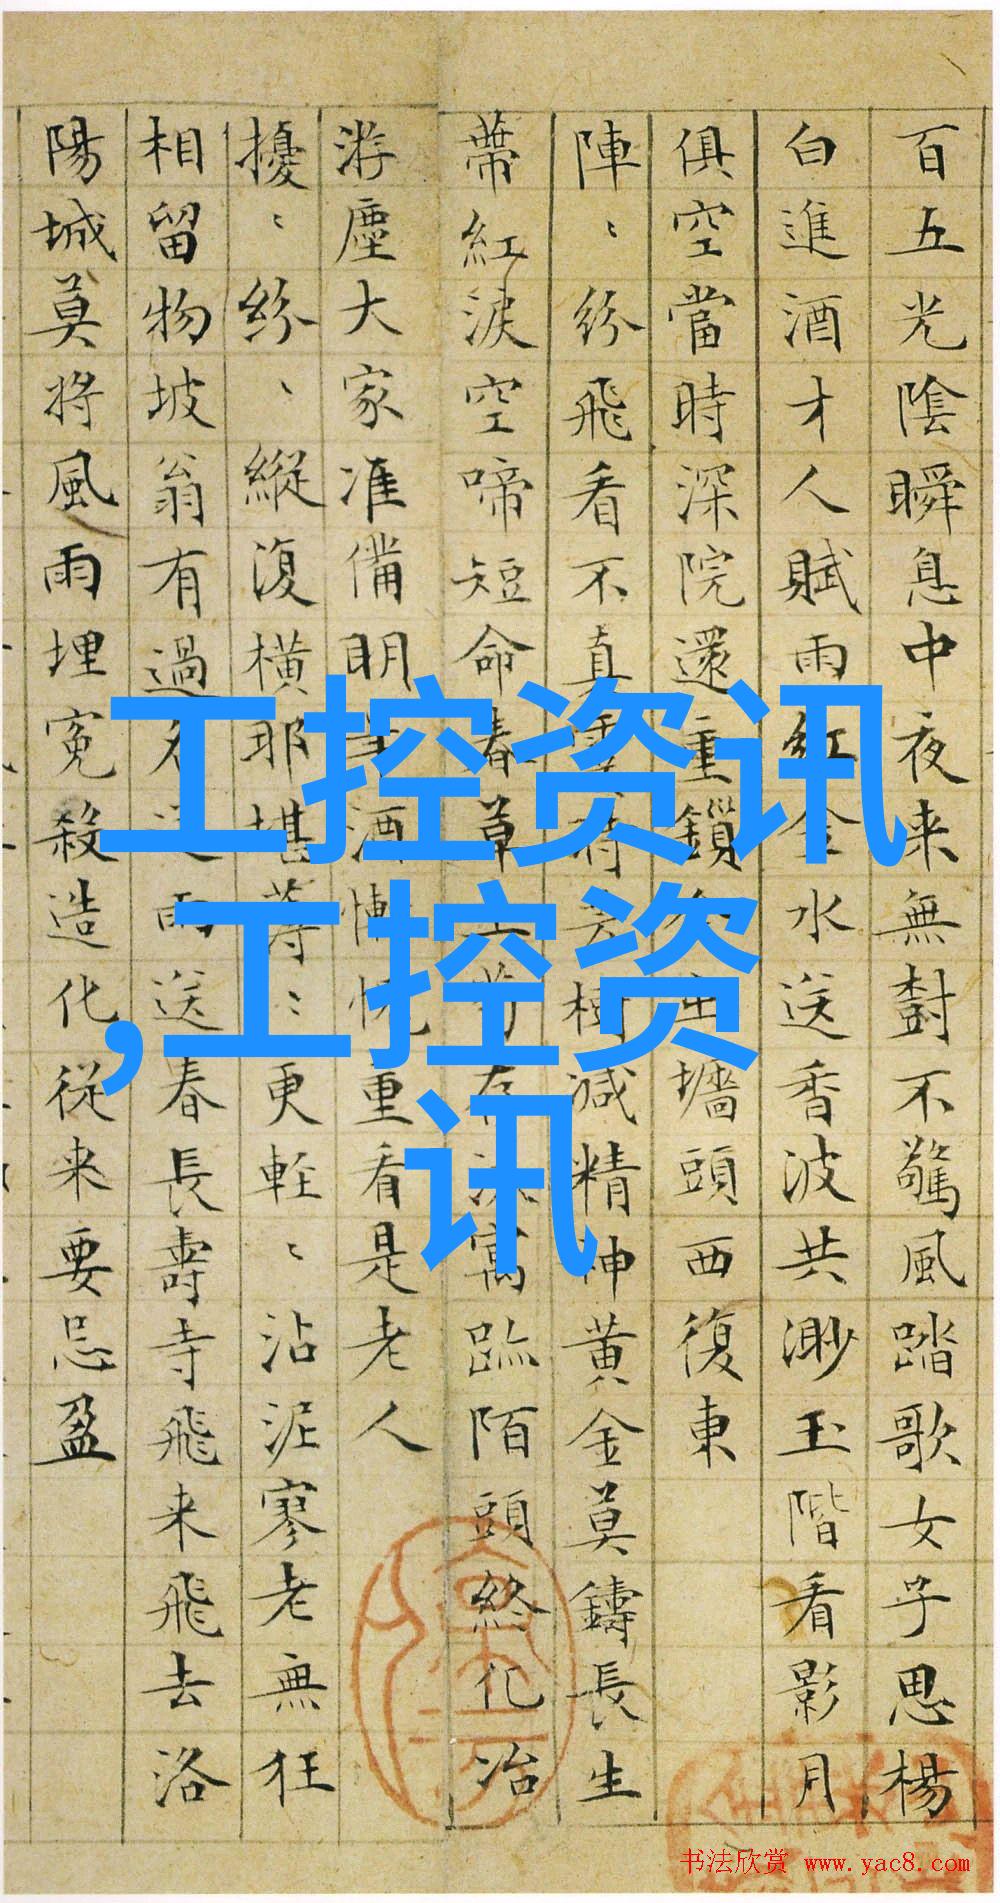 百五光陰瞬息中夜来無對不驚風踏歌女子思楊
白進酒才人賦雨紅金水送香波共渺玉階看影月
俱空當時深院還重鎖墻頭西復東
陣〻紛飛看不真樹減精神黄金莫鑄長生
蒂紅淚空啼短命春草存寓跡陌頭終化冶
游塵大家准備明酒重看是老人
擾〻紛〻縱復橫耶堪薄〻更輊〻沾泥寥老無狂
相留物坡翁有過雨送春長壽寺飛来飛去洛
陽城莫將風雨埋寃殺造化従来要忌盈
工控资讯
,工控资
讯
书法欣赏 www.yac8.com